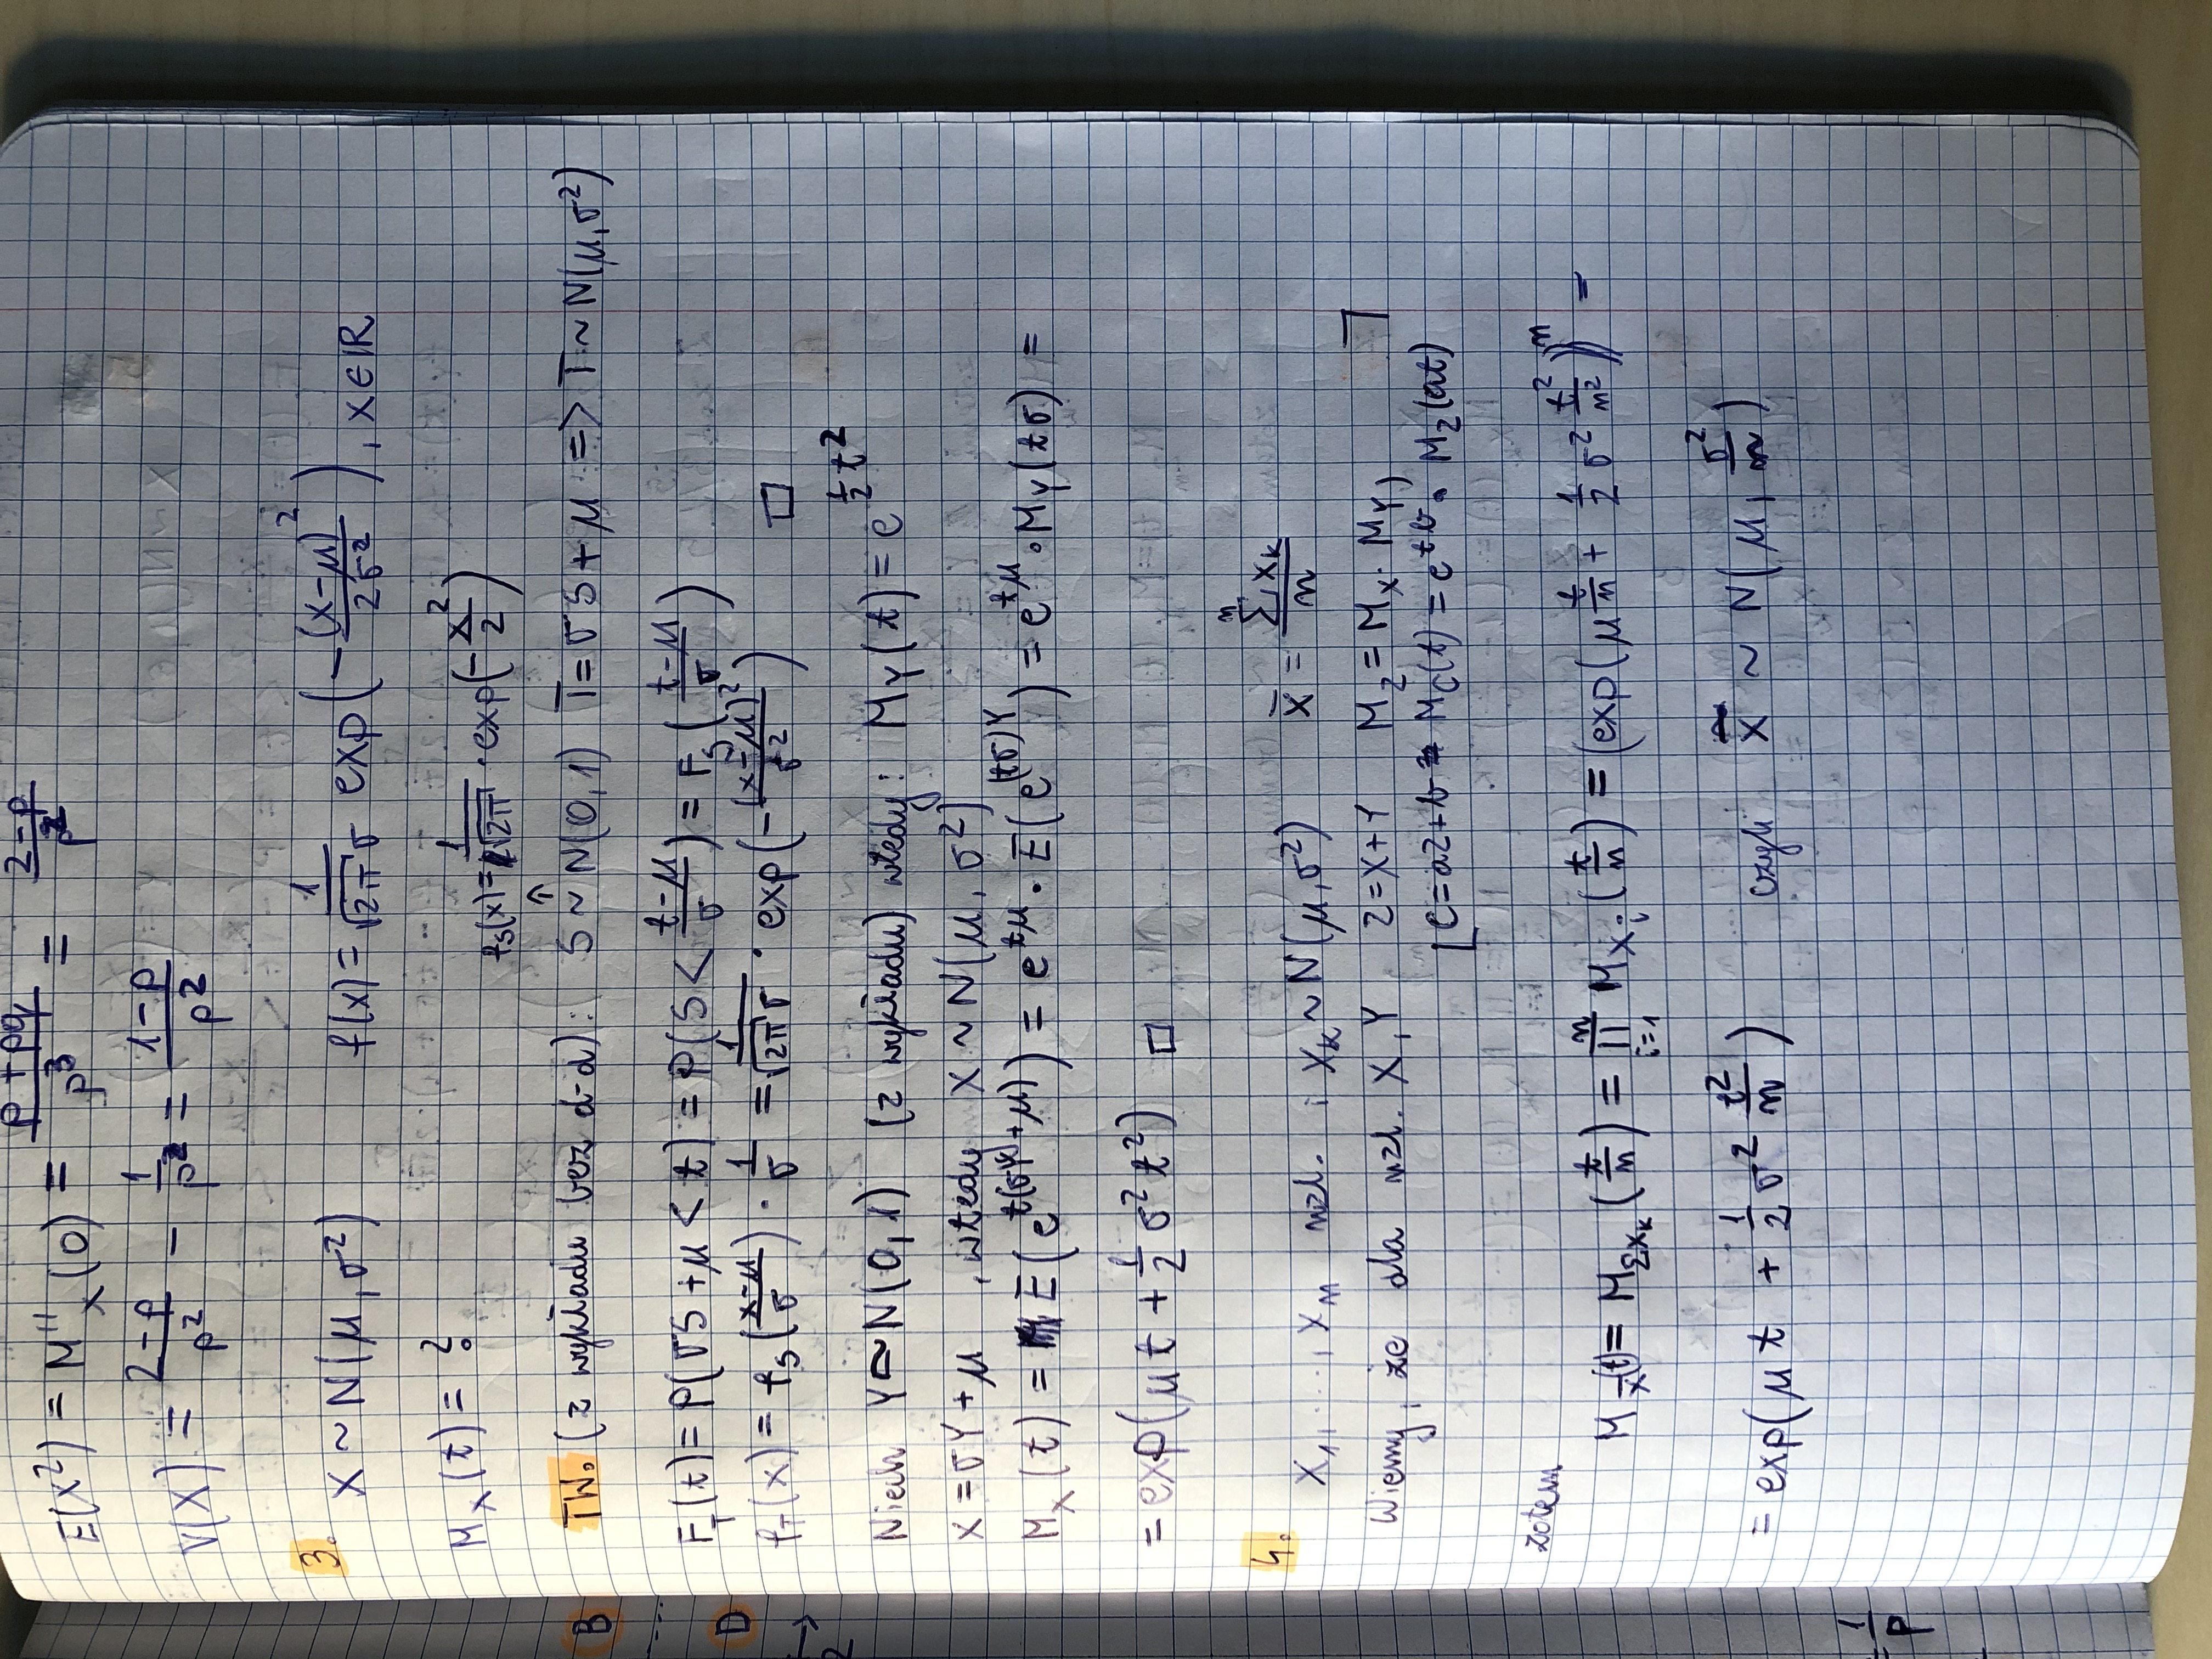 E(X²) = M''_X(0) = (p + pq)/p³ = (2-p)/p²
V(X) = (2-p)/p² - 1/p² = (1-p)/p²
3.
X ~ N(μ, σ²)   f(x) = 1/(√2π σ) exp(-(x-μ)²/(2σ²)), x∈ℝ
M_X(t) = ?   f_S(x) = 1/√2π · exp(-x²/2)
↑
TW. (z wykładu bez d-d): S ~ N(0,1)  T = σS + μ => T ~ N(μ, σ²)
F_T(t) = P(σS + μ < t) = P(S < (t-μ)/σ) = F_S((t-μ)/σ)
f_T(x) = f_S((x-μ)/σ) · 1/σ = 1/(√2π σ) · exp(-(x-μ)²/σ²)   □
Niech Y ~ N(0,1) (z wykładu) wtedy: M_Y(t) = e^(½t²)
X = σY + μ , wtedy X ~ N(μ, σ²)
M_X(t) = E(e^(t(σY+μ))) = e^(tμ) · E(e^((tσ)Y)) = e^(tμ) · M_Y(tσ) =
= exp(μt + ½σ²t²)   □
4.
X₁, ..., Xₙ nzl. ; X_k ~ N(μ, σ²)   X̄ = (Σⁿ X_k)/n
Wiemy, że dla nzl. X, Y   Z = X + Y   M_Z = M_X · M_Y,   ⌉
⌊ C = aZ + b   M_C(t) = e^(tb) · M_Z(at)
zatem
M_X̄(t) = M_ΣX_k(t/n) = ∏_{i=1}^n M_{X_i}(t/n) = (exp(μ t/n + ½ σ² t²/n²))ⁿ =
= exp(μt + ½σ² t²/n)   czyli   X̄ ~ N(μ, σ²/n)
B
D
→
2
= 1/p